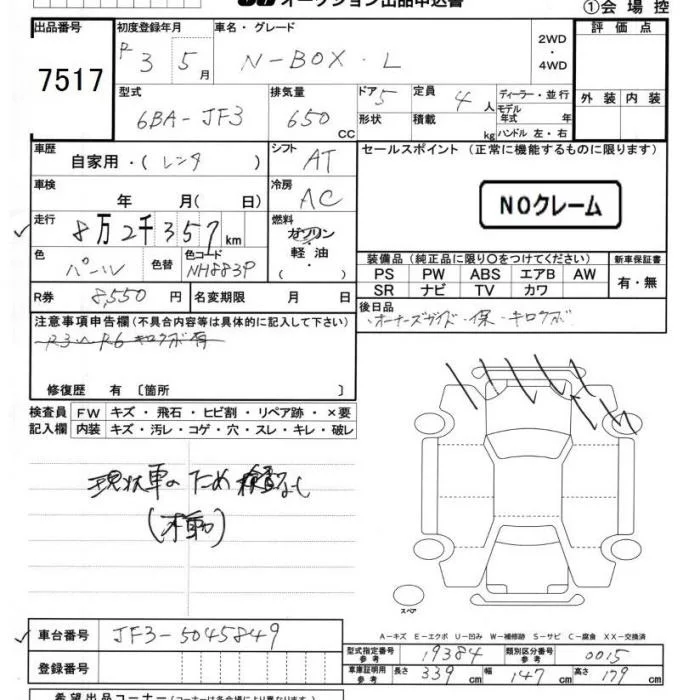 オークション出品申込書
①会場控
出品番号 7517
初度登録年月 R 3 5 月
車名・グレード N-BOX・L
2WD・4WD
評価点
外装 内装
型式 6BA-JF3
排気量 650 CC
ドア 5 形状
定員 4 人 積載 kg
ディーラー・並行
モデル年式 年
ハンドル 左・右
車歴 自家用・(レンタ)
シフト AT
セールスポイント(正常に機能するものに限ります)
車検 年 月( 日)
冷房 AC
NOクレーム
走行 8万2千357km
燃料 ガソリン・軽油・( )
色 パール 色替 色コード NH883P
装備品(純正品に限り〇をつけてください)
新車保証書
PS PW ABS エアB AW
SR ナビ TV カワ
有・無
R券 8,550 円 名変期限 月 日
後日品
・オーナーズガイド・保・キロクボ
注意事項申告欄(不具合内容等は具体的に記入して下さい)
R3~R6 キロクボ有
修復歴 有〔箇所 〕
検査員記入欄
FW キズ・飛石・ヒビ割・リペア跡・×要
内装 キズ・汚レ・コゲ・穴・スレ・キレ・破レ
現状車のため検査なし
(不動)
スペア
A-キズ E-エクボ U-凹み W-補修跡 S-サビ C-腐食 XX-交換済
車台番号 JF3-5045849
型式指定番号 参考 19384 類別区分番号 参考 0015
登録番号
車庫証明用 参考 長さ 339 cm 幅 147 cm 高さ 179 cm
希望出品コーナー(コーナーは各会場により異なります)